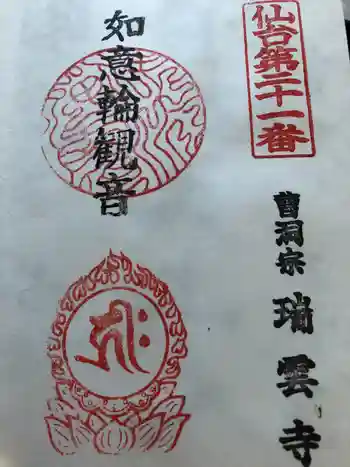 仙台第二十一番
曹洞宗 瑞雲寺
如意輪観音